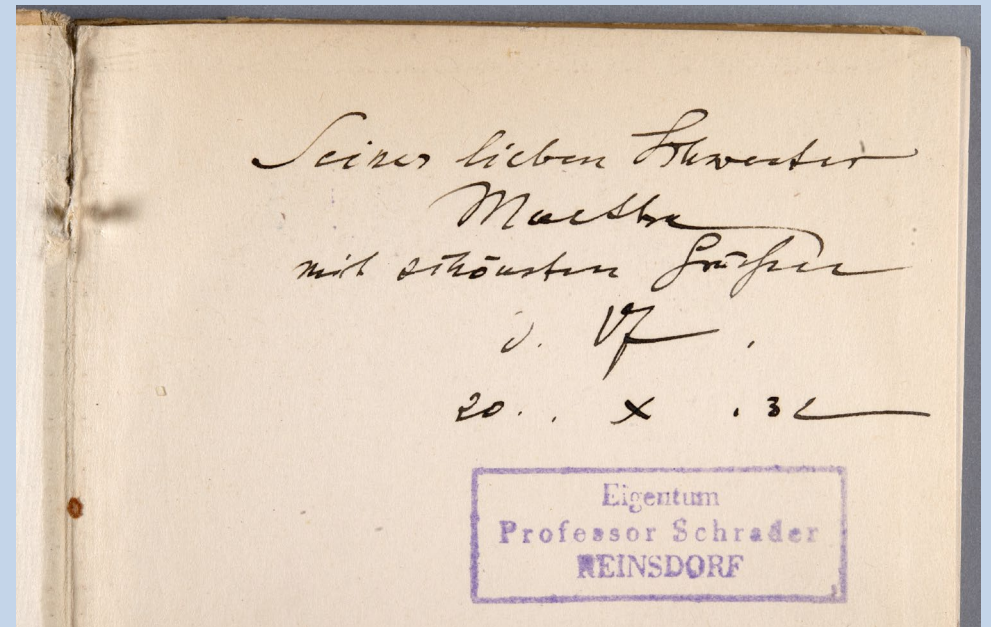 Seiner lieben Schwester
Martha
mit schönsten Grüßen
d. Vf.
20. X. 32
Eigentum
Professor Schrader
REINSDORF